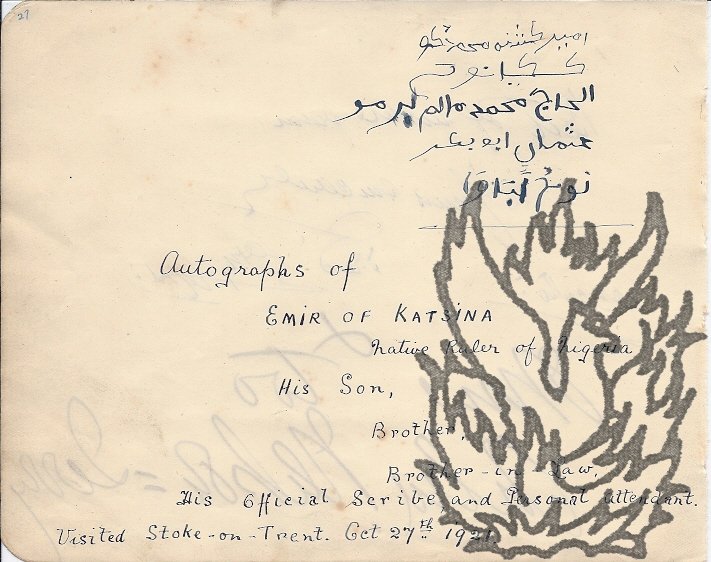 27
امير كشنه محمد دكو
الحاج محمد مالم
عثمان ابو بكر
نوح
Autographs of
EMIR OF KATSINA
Native Ruler of Nigeria
His Son,
Brother,
Brother-in-Law,
His Official Scribe, and Personal attendant.
Visited Stoke-on-Trent. Oct 27th 1921.